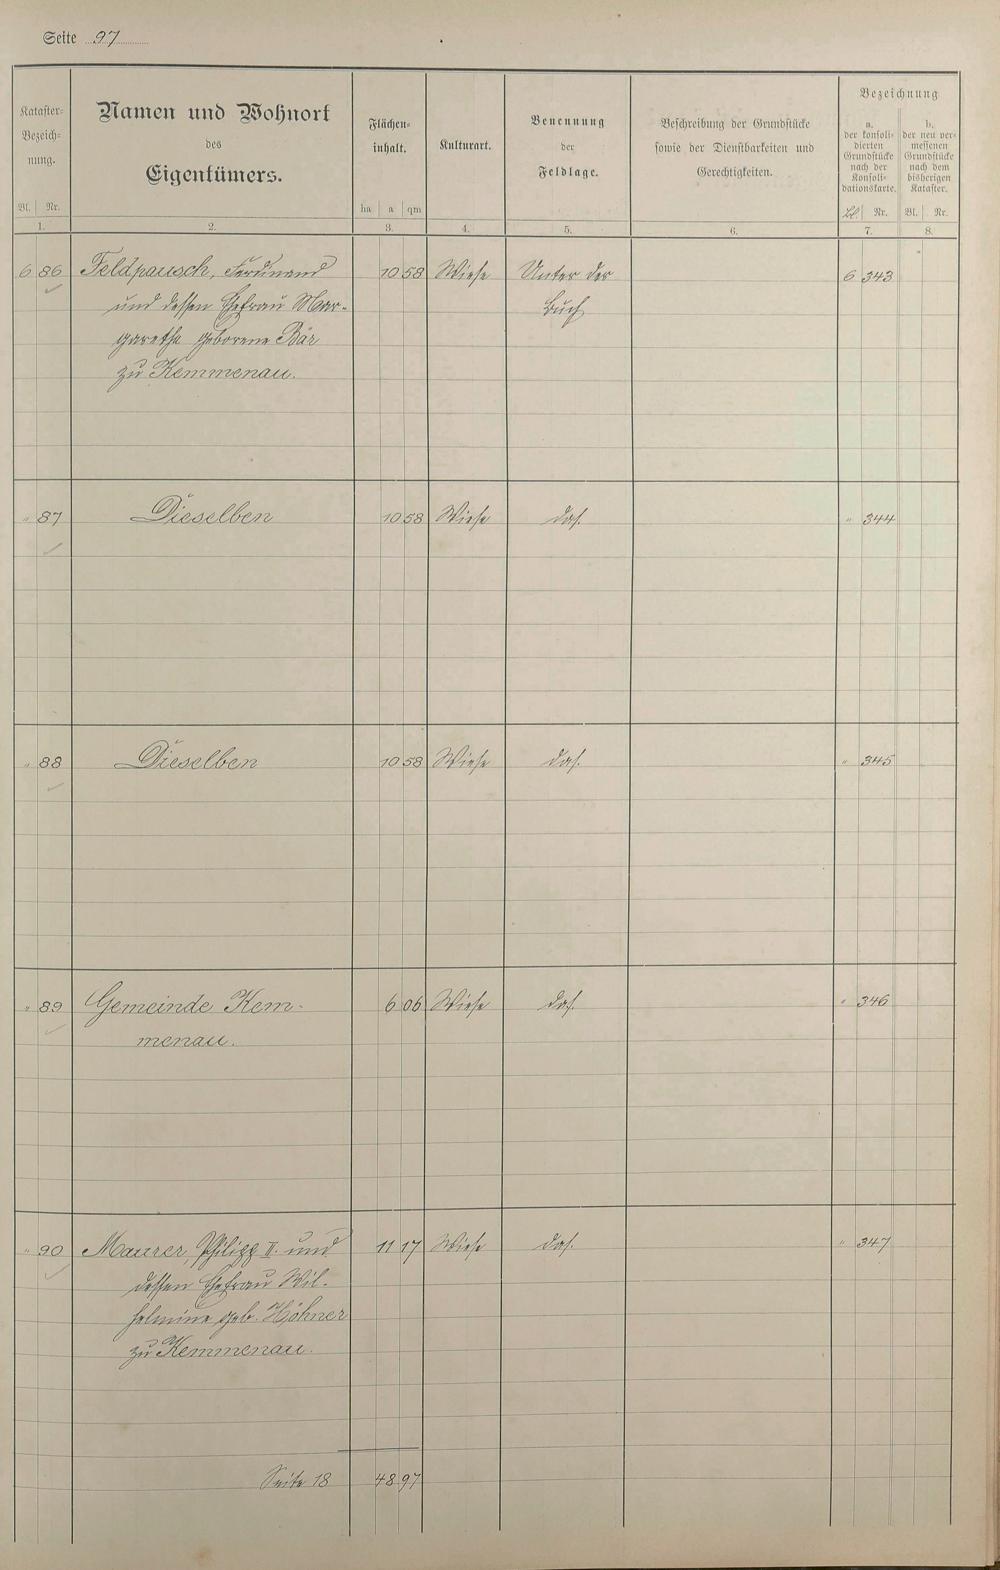 Seite 97
Kataster-
Bezeich-
nung.
Bl. Nr.
Namen und Wohnort
des
Eigentümers.
Flächen-
inhalt.
ha a qm
Kulturart.
Benennung
der
Feldlage.
Beschreibung der Grundstücke
sowie der Dienstbarkeiten und
Gerechtigkeiten.
Bezeichnung
a.
der konsoli-
dierten
Grundstücke
nach der
Konsoli-
dationskarte.
Bl. Nr.
b.
der neu ver-
messenen
Grundstücke
nach dem
bisherigen
Kataster.
Bl. Nr.
1. 2. 3. 4. 5. 6. 7. 8.
6 86 Feldpausch, Ferdinand 10 58 Wiese Unter der 6 343
und dessen Ehefrau Mar- Buch
garethe geborene Bär
zu Kemmenau.
" 87 Dieselben 10 58 Wiese das. " 344
" 88 Dieselben 10 58 Wiese das. " 345
" 89 Gemeinde Kem- 6 06 Wiese das. " 346
menau.
" 90 Maurer, Philipp II. und 11 17 Wiese das. " 347
dessen Ehefrau Wil-
helmine geb. Höhner
zu Kemmenau.
Seite 18 48 97